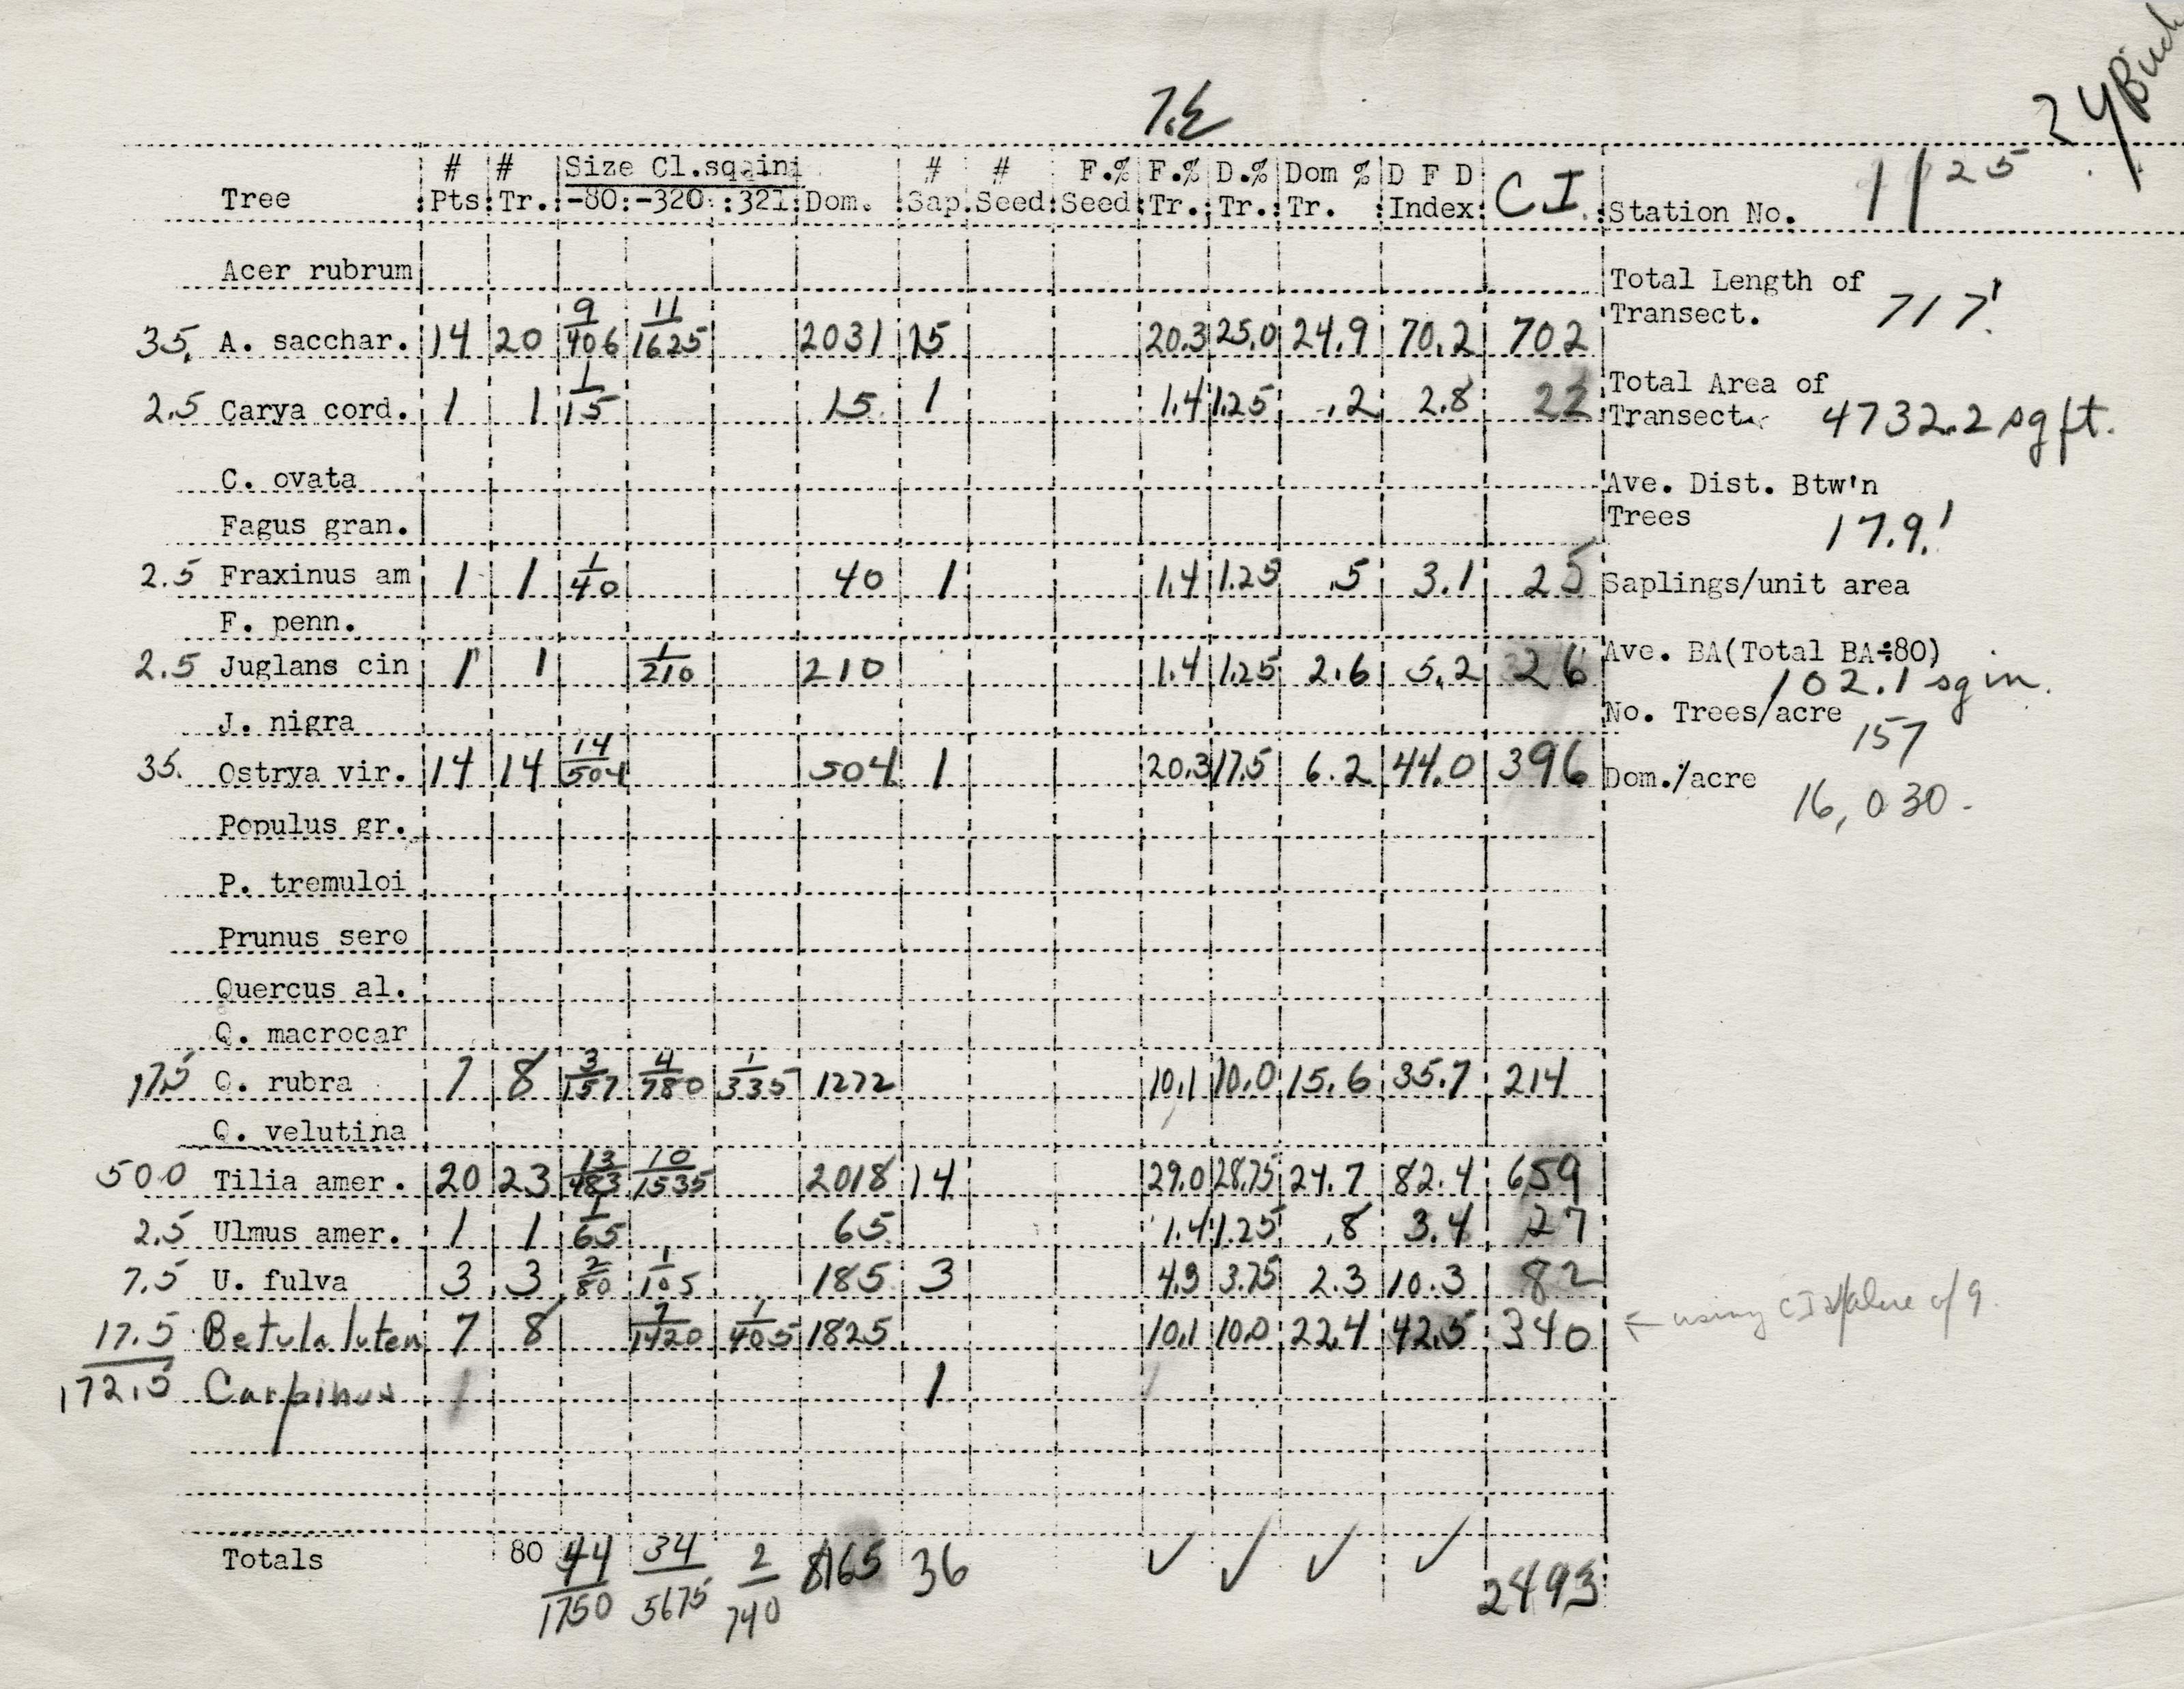 7.E
# # Size Cl.sq.in # # F.% F.% D.% Dom % D F D
Tree Pts Tr. -80 -320 321 Dom. Sap. Seed Seed Tr. Tr. Tr. Index C I. Station No. 11 25
Acer rubrum
Total Length of
Transect. 717'
35. A. sacchar. 14 20 9/406 11/1625 2031 15 20.3 25.0 24.9 70.2 702
Total Area of
Transect. 4732.2 sq ft.
2.5 Carya cord. 1 1 1/15 15 1 1.4 1.25 .2 2.8 22
C. ovata
Ave. Dist. Btw'n
Trees 17.9'
Fagus gran.
2.5 Fraxinus am 1 1 1/40 40 1 1.4 1.25 .5 3.1 25
Saplings/unit area
F. penn.
2.5 Juglans cin 1 1 1/210 210 1.4 1.25 2.6 5.2 26
Ave. BA(Total BA÷80)
102.1 sq in.
J. nigra
No. Trees/acre
157
35. Ostrya vir. 14 14 14/504 504 1 20.3 17.5 6.2 44.0 396
Dom./acre
16,030.
Populus gr.
P. tremuloi
Prunus sero
Quercus al.
Q. macrocar
17.5 Q. rubra 7 8 3/157 4/780 1/335 1272 10.1 10.0 15.6 35.7 214
Q. velutina
50.0 Tilia amer. 20 23 13/483 10/1535 2018 14 29.0 28.75 24.7 82.4 659
2.5 Ulmus amer. 1 1 1/65 65 1.4 1.25 .8 3.4 27
7.5 U. fulva 3 3 2/80 1/105 185 3 4.3 3.75 2.3 10.3 82
17.5 Betula luten 7 8 7/1420 1/405 1825 10.1 10.0 22.4 42.5 340 ← using CI Value of 9.
172.5 Carpinus 1 1
Totals 80 44/1750 34/5675 2/740 8165 36 ✓ ✓ ✓ ✓ 2493